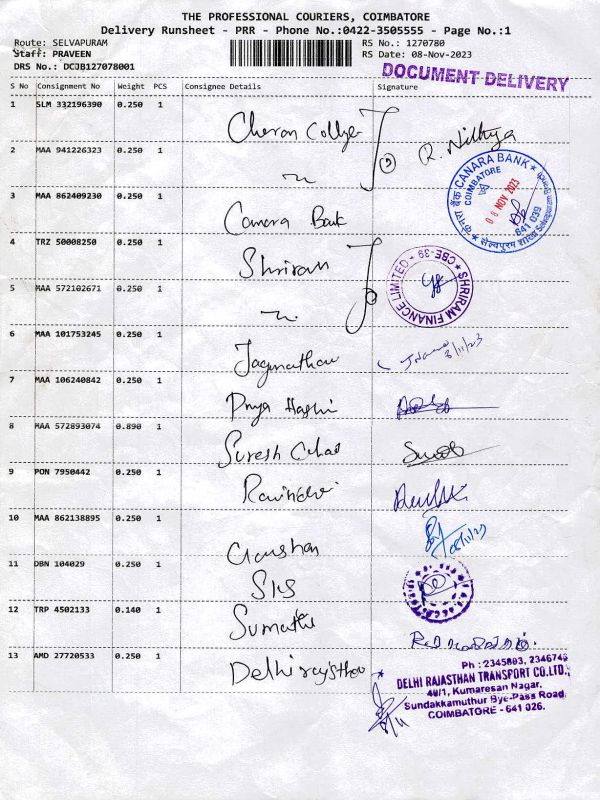 THE PROFESSIONAL COURIERS, COIMBATORE
Delivery Runsheet - PRR - Phone No.:0422-3505555 - Page No.:1
Route: SELVAPURAM
RS No.: 1270780
Staff: PRAVEEN
RS Date: 08-Nov-2023
DRS No.: DCJB127078001
DOCUMENT DELIVERY
S No Consignment No Weight PCS Consignee Details Signature
1 SLM 332196390 0.250 1 Cheran College R. Nithya
2 MAA 941226323 0.250 1
3 MAA 862409230 0.250 1 Canara Bank
केनरा बैंक CANARA BANK
COIMBATORE
08 NOV 2023
641 039
सेल्वपुरम शाखा Selvapuram Branch
4 TRZ 50008250 0.250 1 Shriram
SHRIRAM FINANCE LIMITED - CBE-39
5 MAA 572102671 0.250 1
6 MAA 101753245 0.250 1 Jagannathan 8/11/23
7 MAA 106240842 0.250 1 Priya
8 MAA 572893074 0.890 1 Suresh
9 PON 7950442 0.250 1
10 MAA 862138895 0.250 1 08/11/23
11 DBN 104029 0.250 1 SKS
12 TRP 4502133 0.140 1 Sumathi
13 AMD 27720533 0.250 1 Delhi rajsthan
Ph : 2345803, 2346749
DELHI RAJASTHAN TRANSPORT CO.LTD.,
49/1, Kumaresan Nagar,
Sundakkamuthur Bye-Pass Road,
COIMBATORE - 641 026.
8/11